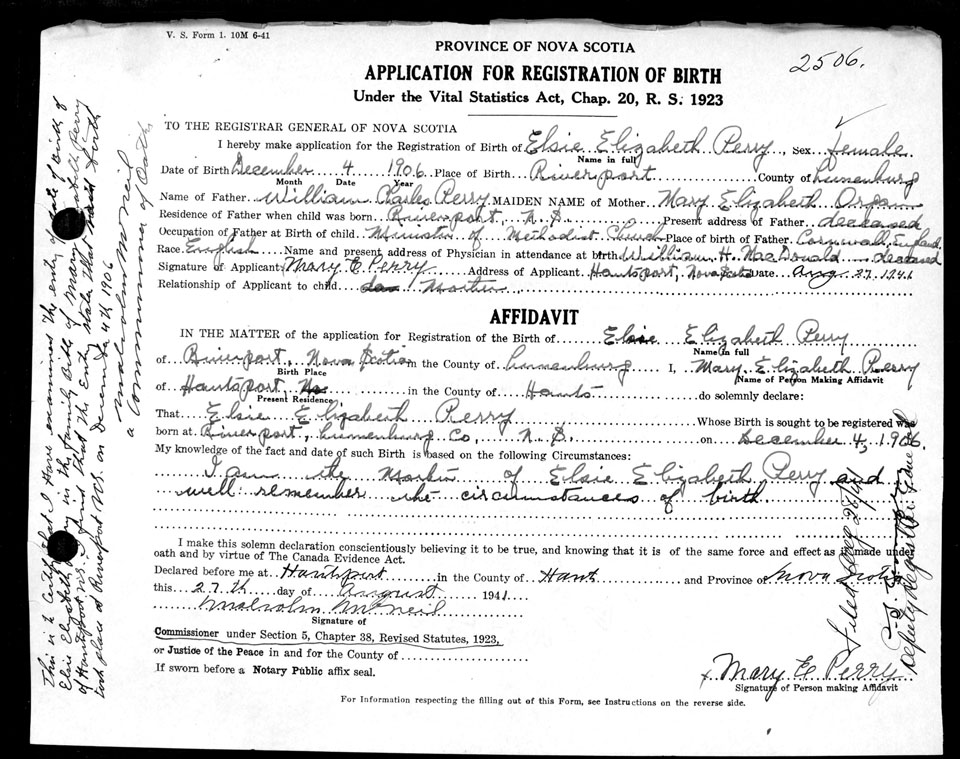 V. S. Form 1. 10M 6-41
2506.
PROVINCE OF NOVA SCOTIA
APPLICATION FOR REGISTRATION OF BIRTH
Under the Vital Statistics Act, Chap. 20, R. S. 1923
TO THE REGISTRAR GENERAL OF NOVA SCOTIA
I hereby make application for the Registration of Birth of Elsie Elizabeth Perry, Sex female
Name in full
Date of Birth December 4 1906 Place of Birth Riverport County of Lunenburg
Month Date Year
Name of Father William Charles Perry MAIDEN NAME of Mother Mary Elizabeth
Residence of Father when child was born Riverport N S Present address of Father deceased
Occupation of Father at Birth of child Minister of Methodist Church Place of birth of Father Cornwall, England
Race English Name and present address of Physician in attendance at birth William H. MacDonald deceased
Signature of Applicant Mary E Perry Address of Applicant Hantsport, Nova Scotia Date Aug 27 1941
Relationship of Applicant to child Mother
AFFIDAVIT
IN THE MATTER of the application for Registration of the Birth of Elsie Elizabeth Perry
Name in full
of Riverport, Nova Scotia in the County of Lunenburg I, Mary Elizabeth Perry
Birth Place Name of Person Making Affidavit
of Hantsport in the County of Hants do solemnly declare:
Present Residence
That Elsie Elizabeth Perry Whose Birth is sought to be registered was
born at Riverport, Lunenburg Co, N S. on December 4, 1906.
My knowledge of the fact and date of such Birth is based on the following Circumstances:
I am the Mother of Elsie Elizabeth Perry and
well remember the circumstances of birth
I make this solemn declaration conscientiously believing it to be true, and knowing that it is of the same force and effect as if made under
oath and by virtue of The Canada Evidence Act.
Declared before me at Hantsport in the County of Hants and Province of Nova Scotia
this 27th day of August 1941
Malcolm McNeil
Signature of
Commissioner under Section 5, Chapter 38, Revised Statutes, 1923,
or Justice of the Peace in and for the County of
If sworn before a Notary Public affix seal.
x Mary E Perry
Signature of Person making Affidavit
For Information respecting the filling out of this Form, see Instructions on the reverse side.
This is to Certify that I Have examined the entry of date of Birth of
Elsie Elizabeth Perry in the Family Bible of Mary Elizabeth Perry
of Hantsport NS. I find that the Entry states that said birth
took place at Riverport N.S. on December 4th 1906
Malcolm McNeil
a Commissioner of Oaths
Filed Aug 28/41
Deputy Registrar General